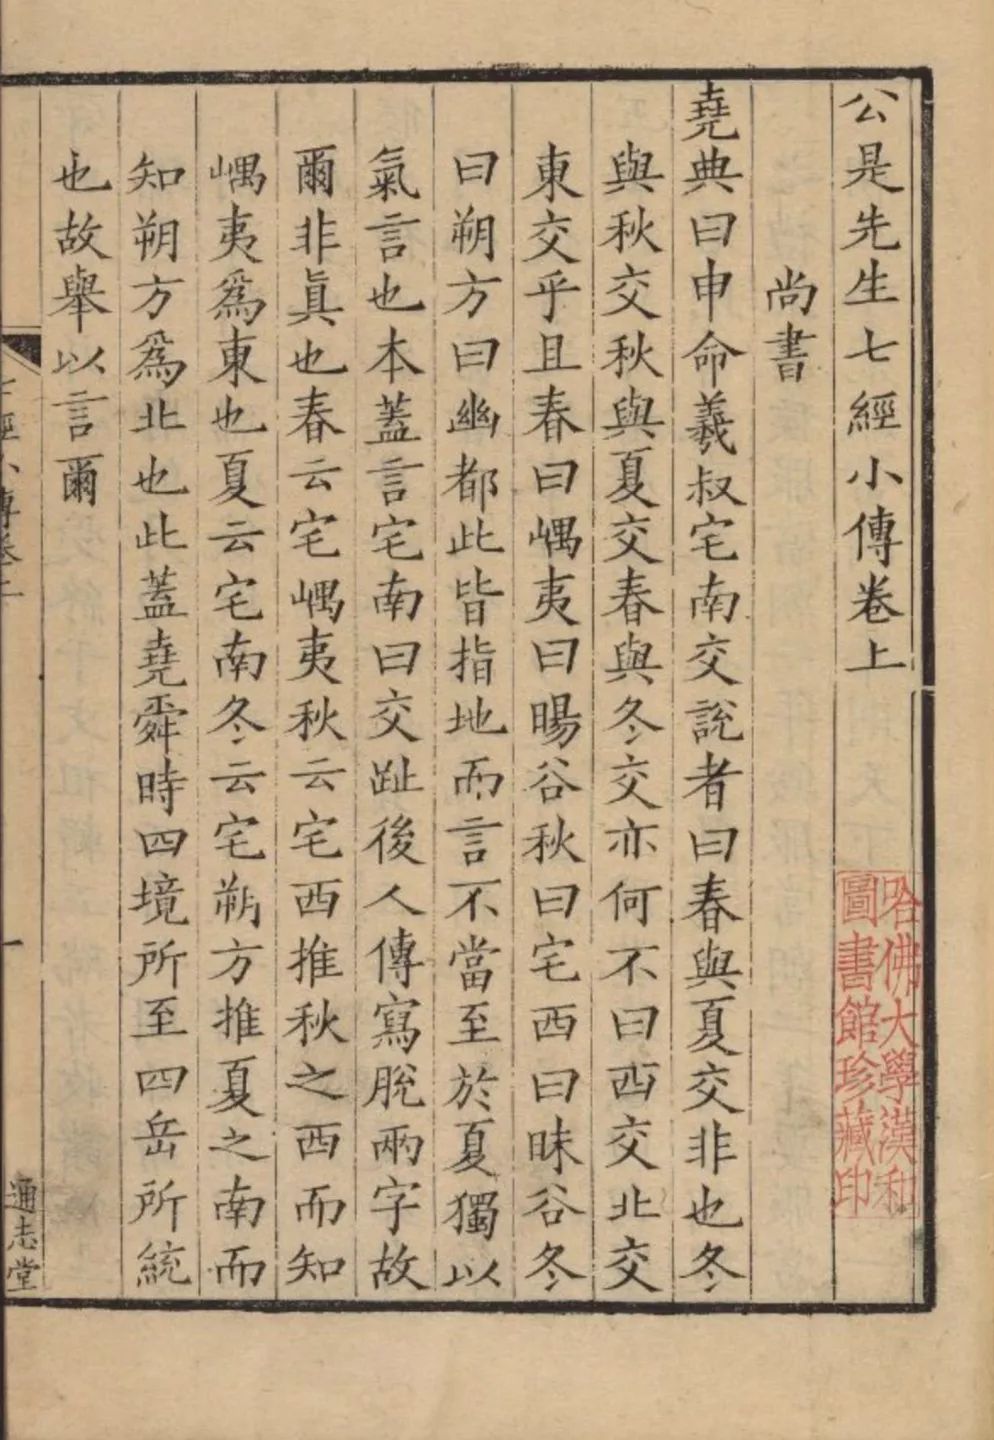 公是先生七經小傳卷上
尚書
堯典曰申命羲叔宅南交說者曰春與夏交非也冬
與秋交秋與夏交春與冬交亦何不曰西交北交
東交乎且春曰嵎夷曰暘谷秋曰宅西曰昧谷冬
曰朔方曰幽都此皆指地而言不當至於夏獨以
氣言也本蓋言宅南曰交趾後人傳寫脫兩字故
爾非眞也春云宅嵎夷秋云宅西推秋之西而知
嵎夷爲東也夏云宅南冬云宅朔方推夏之南而
知朔方爲北也此蓋堯舜時四境所至四岳所統
也故舉以言爾
七經小傳卷上
一
通志堂
哈佛大學漢和
圖書館珍藏印